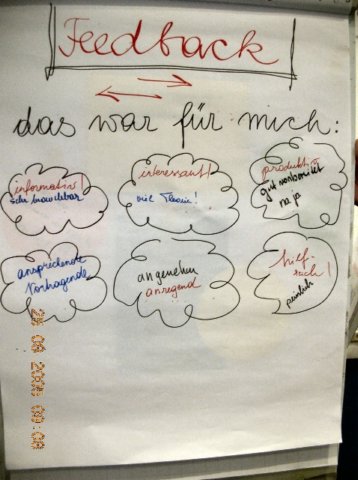 Feedback
das war für mich:
informativ!
sehr brauchbar
interessant!
viel Theorie!
produktiv
gut vorbereitet
na ja
ansprechende
Vortragende
angenehm
anregend
hilf-
reich!
peinlich